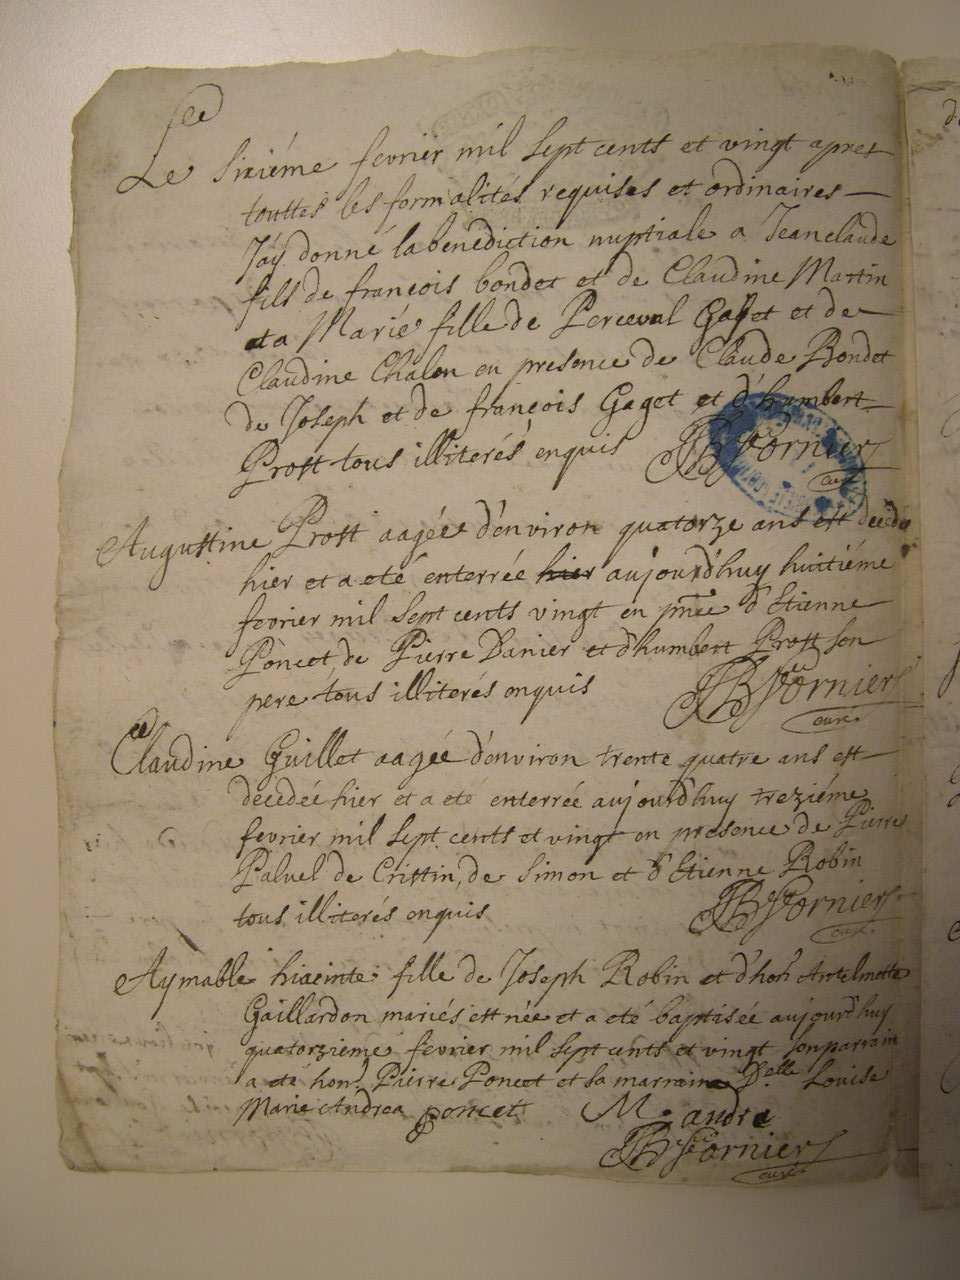 Le Sixiéme fevrier mil sept cents et vingt apres
touttes les formalités requises et ordinaires
J'ay donné la benediction nuptiale a Jeanclaude
fils de françois bondet et de Claudine Martin
et a Marie fille de Perceval Gaget et de
Claudine Chalen en presence de Claude Bondet
de Joseph et de françois Gaget et d'humbert
Prost tous illiterés enquis JB Fornier
curé
Augustine Prost aagée d'environ quatorze ans est decedée
hier et a eté enterrée hier aujourd'huy huitiéme
fevrier mil sept cents vingt en pnce d'Etienne
Poncet, de Pierre Danier et d'humbert Prost son
pere tous illiterés enquis JB Fornier
curé
Claudine Guillet aagée d'environ trente quatre ans est
decedée hier et a eté enterrée aujourd'huy treziéme
fevrier mil sept cents et vingt en presence de Pierre
Paluel de Cristin, de Simon et d'Etienne Robin
tous illiterés enquis JB Fornier
curé
Aymable hiacinte fille de Joseph Robin et d'hon. Antelmette
Gaillardon mariés est née et a eté baptisée aujourd'huy
quatorzieme fevrier mil sept cents et vingt son parrain
a eté hon. Pierre Poncet et sa marraine D.elle Louise
Marie Andrea poncet M. andre
JB Fornier
curé